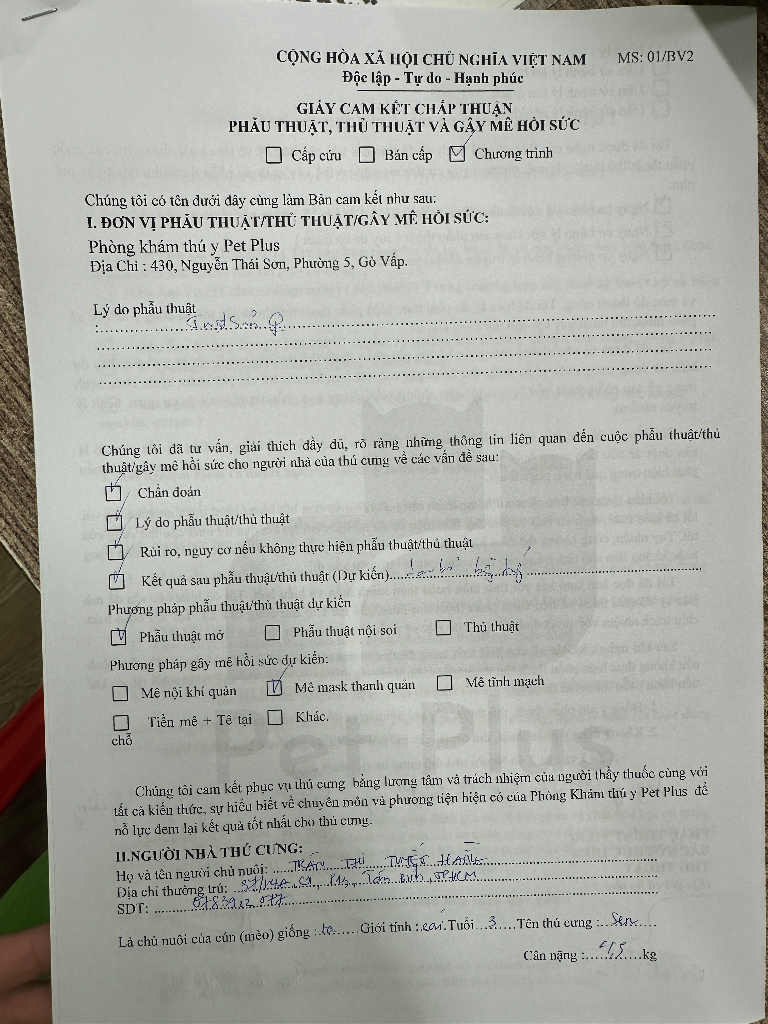 CỘNG HÒA XÃ HỘI CHỦ NGHĨA VIỆT NAM MS: 01/BV2
Độc lập - Tự do - Hạnh phúc
GIẤY CAM KẾT CHẤP THUẬN
PHẪU THUẬT, THỦ THUẬT VÀ GÂY MÊ HỒI SỨC
☐ Cấp cứu ☐ Bán cấp ☑ Chương trình
Chúng tôi có tên dưới đây cùng làm Bản cam kết như sau:
I. ĐƠN VỊ PHẪU THUẬT/THỦ THUẬT/GÂY MÊ HỒI SỨC:
Phòng khám thú y Pet Plus
Địa Chỉ : 430, Nguyễn Thái Sơn, Phường 5, Gò Vấp.
Lý do phẫu thuật
: ♀
Chúng tôi đã tư vấn, giải thích đầy đủ, rõ ràng những thông tin liên quan đến cuộc phẫu thuật/thủ
thuật/gây mê hồi sức cho người nhà của thú cưng về các vấn đề sau:
☑ Chẩn đoán
☑ Lý do phẫu thuật/thủ thuật
☑ Rủi ro, nguy cơ nếu không thực hiện phẫu thuật/thủ thuật
☑ Kết quả sau phẫu thuật/thủ thuật (Dự kiến)
Phương pháp phẫu thuật/thủ thuật dự kiến
☑ Phẫu thuật mở ☐ Phẫu thuật nội soi ☐ Thủ thuật
Phương pháp gây mê hồi sức dự kiến:
☐ Mê nội khí quản ☑ Mê mask thanh quản ☐ Mê tĩnh mạch
☐ Tiền mê + Tê tại ☐ Khác.
chỗ
Pet Plus
Chúng tôi cam kết phục vụ thú cưng bằng lương tâm và trách nhiệm của người thầy thuốc cùng với
tất cả kiến thức, sự hiểu biết về chuyên môn và phương tiện hiện có của Phòng Khám thú y Pet Plus để
nỗ lực đem lại kết quả tốt nhất cho thú cưng.
II.NGƯỜI NHÀ THÚ CƯNG:
Họ và tên người chủ nuôi: TRẦN THỊ TUYẾT
Địa chỉ thường trú: Tân Bình, TPHCM
SDT:
Là chủ nuôi của cún (mèo) giống : ta Giới tính : cái Tuổi 3 Tên thú cưng : Sen
Cân nặng : kg